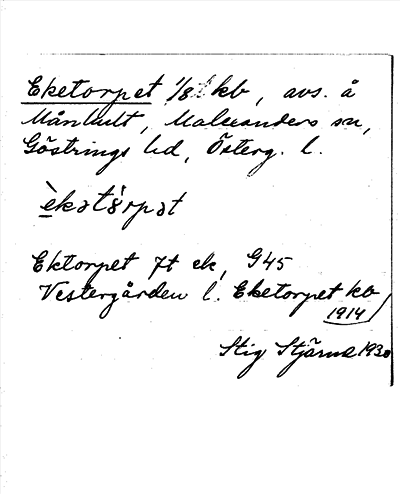 Eketorpet 1/8 kb, avs. å
Månhult, Malexanders sn,
Göstrings hd, Österg. l.
èkətórpət
Ektorpet Jt ek, G45
Vestergården l. Eketorpet kb
1914
Stig Stjärne 1930